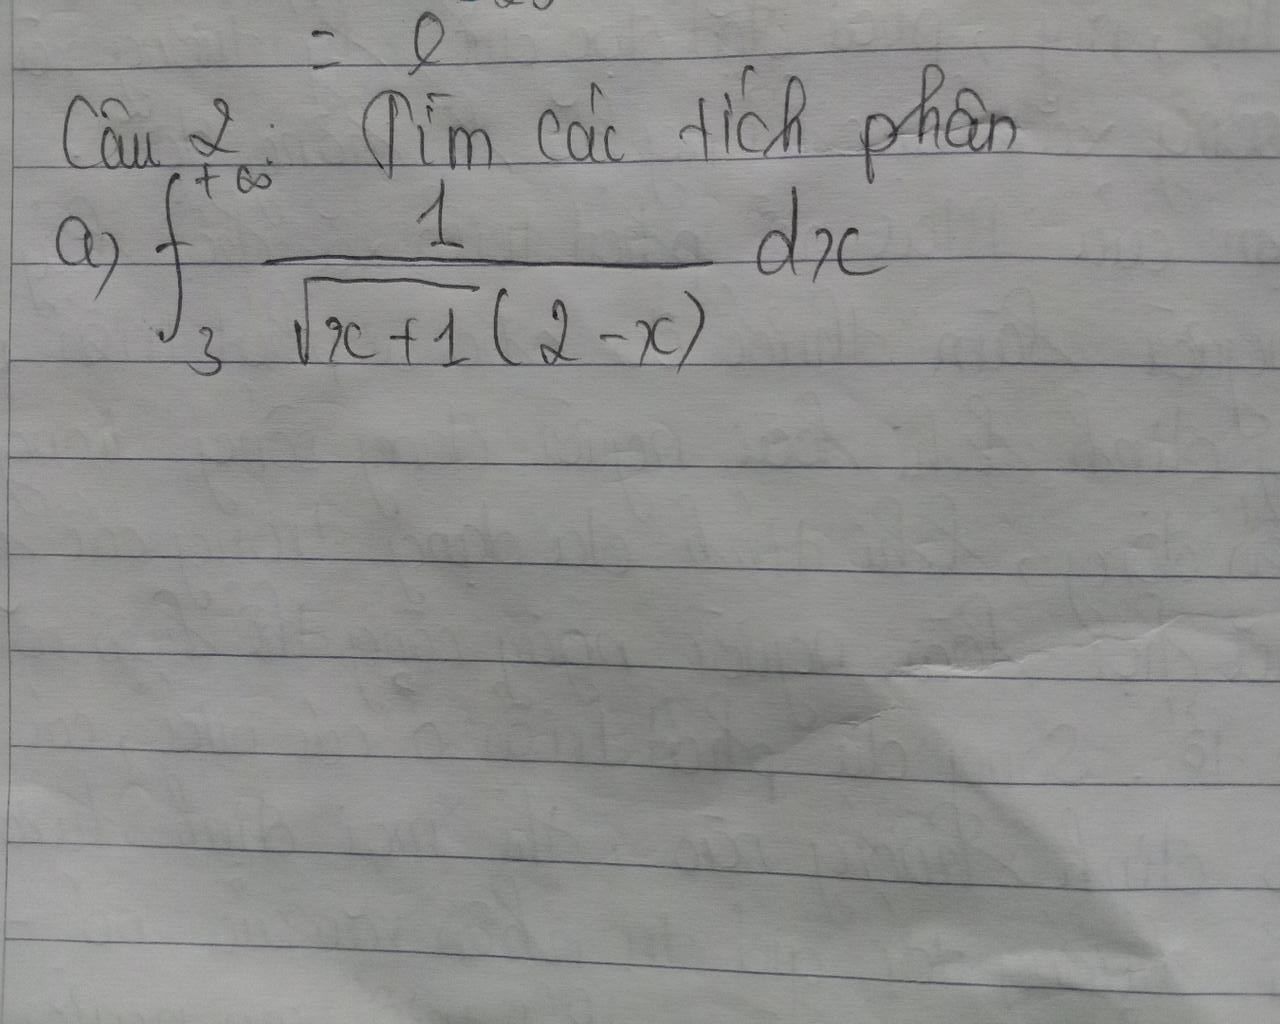 = e
Câu 2: Tìm các tích phân
a) ∫₃^{+∞} 1 / (√(x+1) (2-x)) dx